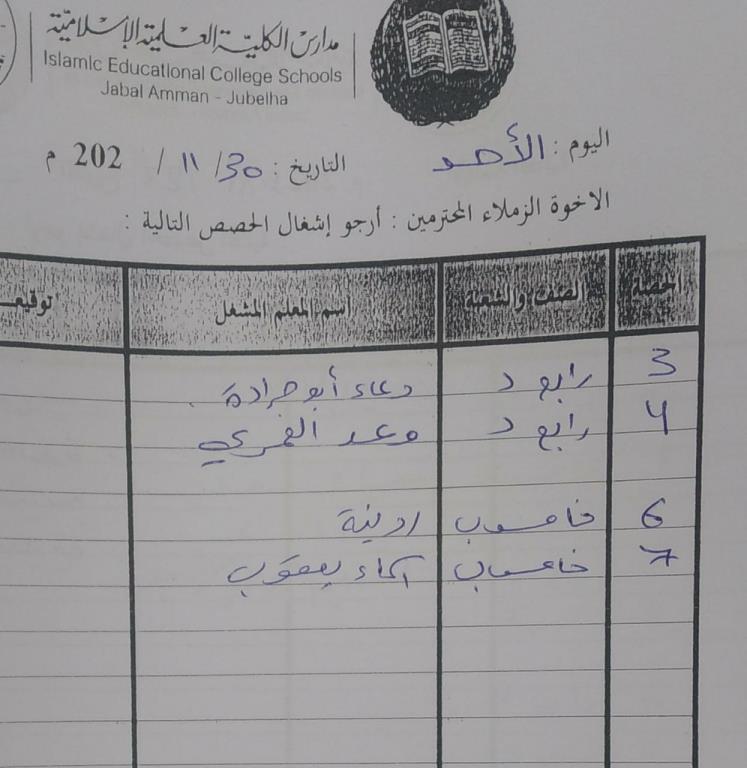 مدارس الكلية العلمية الإسلامية
Islamic Educational College Schools
Jabal Amman - Jubelha
اليوم : الأحد التاريخ : 30 / 11 / 202 م
الاخوة الزملاء المحترمين : أرجو إشغال الحصص التالية :
الحصة الصف والشعبة اسم المعلم المشغل توقيع
3 رابع د دعاء أبو جرادة
4 رابع د وعد العمري
6 خامس ب ردينة
7 خامس ب اسماء يعقوب